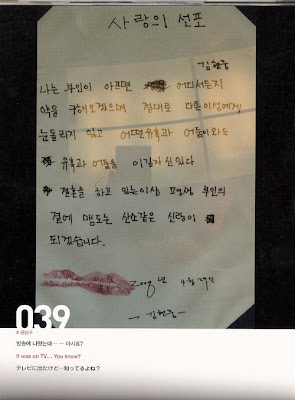 사랑의 선포
김현중
나는 부인이 아프면 어디서든지
약을 구해오겠으며 절대로 다른이성에게,
눈돌리지 않고 어떤유혹과 어둠이와도
유혹과 어둠을 이길자신있다
결혼을 하고 있는이상 평생 부인의
곁에 맴도는 산소같은 신랑이
되겠습니다.
2008년 4월 29일
김현중
039
# 공상구
방송에 나왔는데…… 아시죠?
It was on TV… You know?
テレビに出たけど…知ってるよね？